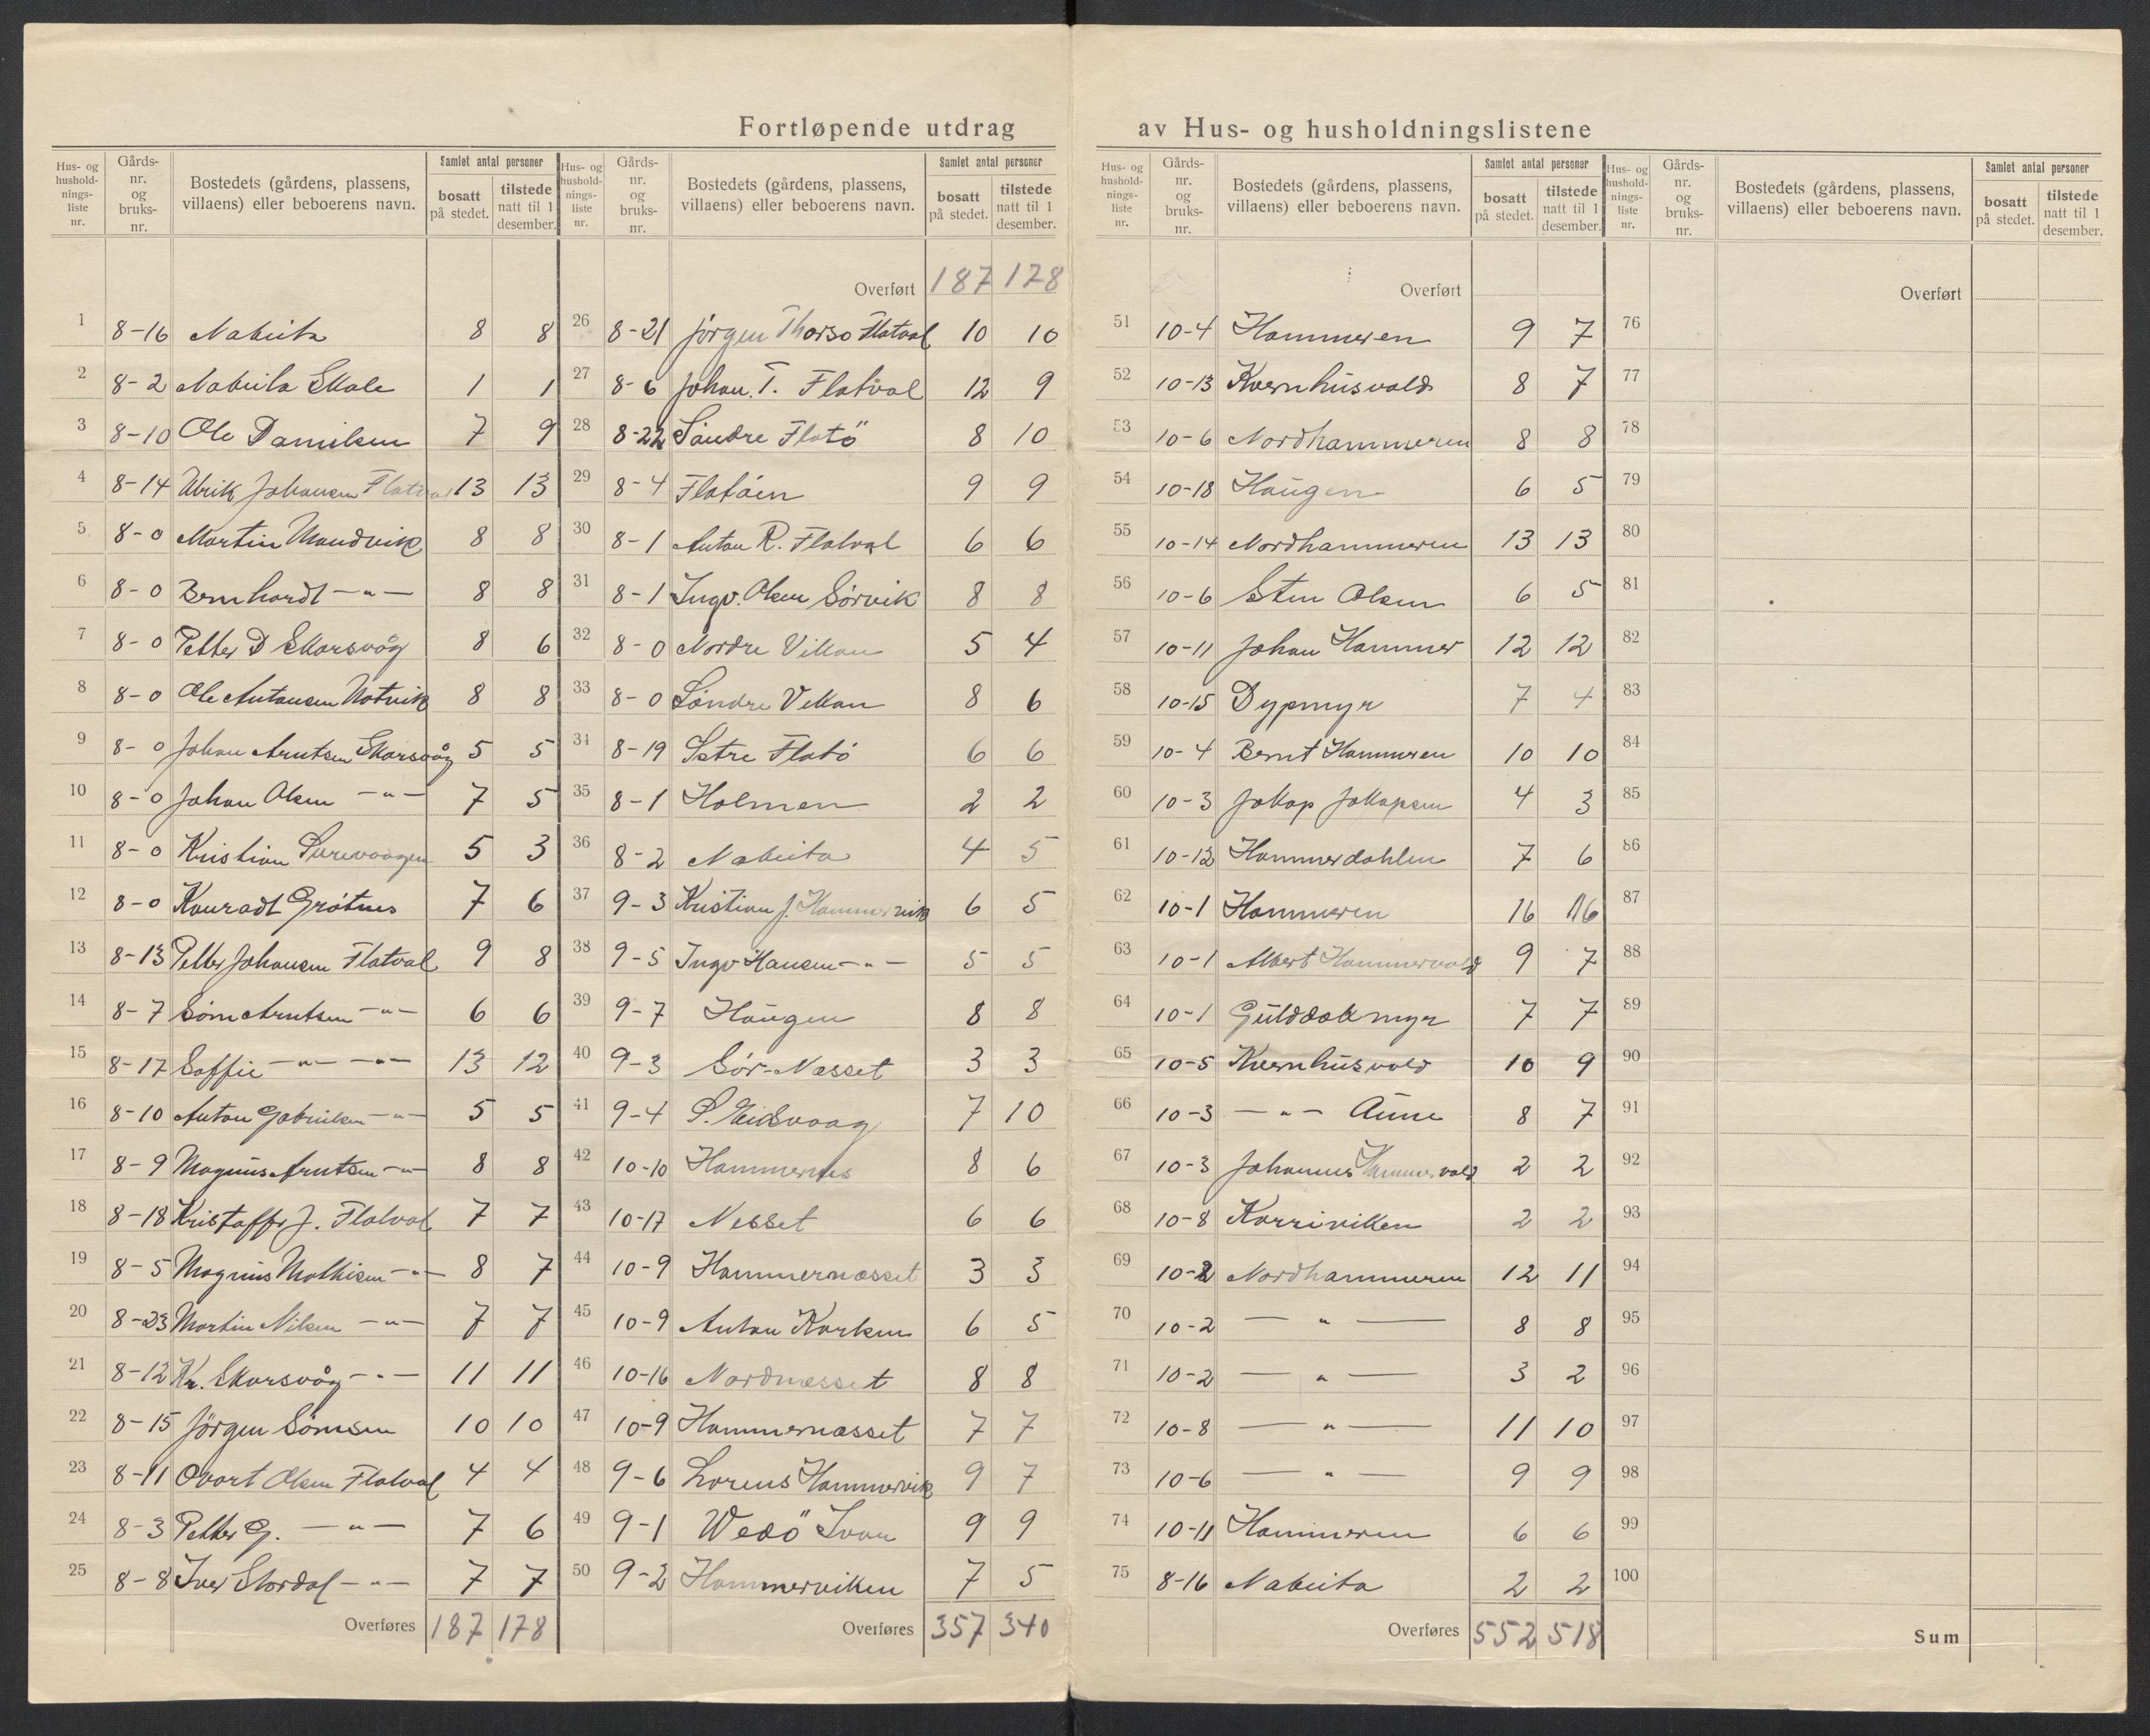 Fortløpende utdrag av Hus- og husholdningslistene
Hus- og husholdnings-liste nr. Gårds-nr. og bruks-nr. Bostedets (gårdens, plassens, villaens) eller beboerens navn. Samlet antal personer bosatt på stedet. tilstede natt til 1 desember.
1 8-16 Nabeita 8 8
2 8-2 Nabeita Skole 1 1
3 8-10 Ole Danielsen 7 9
4 8-14 Ulrik Johansen Flatval 13 13
5 8-0 Martin Mandvik 8 8
6 8-0 Bernhardt -"- 8 8
7 8-0 Petter D Skarsvåg 8 6
8 8-0 Ole Antonsen Notvik 8 8
9 8-0 Johan Arntsen Skarsvåg 5 5
10 8-0 Johan Olsen -"- 7 5
11 8-0 Kristian 5 3
12 8-0 Konradt Grøtnes 7 6
13 8-13 Petter Johansen Flatval 9 8
14 8-7 Søren Arntsen -"- 6 6
15 8-17 Soffie -"- -"- 13 12
16 8-10 Anton Gabrielsen -"- 5 5
17 8-9 Magnus Arntsen -"- 8 8
18 8-18 Kristoffer J. Flatval 7 7
19 8-5 Magnus Mathisen -"- 8 7
20 8-23 Martin Nilsen -"- 7 7
21 8-12 Kr. Skarsvåg -"- 11 11
22 8-15 Jörgen Sörensen 10 10
23 8-11 Ovart Olsen Flatval 4 4
24 8-3 Petter G. -"- 7 6
25 8-8 Iver Stordal -"- 7 7
Overføres 187 178
Hus- og husholdnings-liste nr. Gårds-nr. og bruks-nr. Bostedets (gårdens, plassens, villaens) eller beboerens navn. Samlet antal personer bosatt på stedet. tilstede natt til 1 desember.
Overført 187 178
26 8-21 Jörgen Thorso Flatval 10 10
27 8-6 Johan. T. Flatval 12 9
28 8-22 Söndre Flatö 8 10
29 8-4 Flatöen 9 9
30 8-1 Anton R. Flatval 6 6
31 8-1 Ingv. Olsen Sørvik 8 8
32 8-0 Nordre Vikan 5 4
33 8-0 Söndre Vikan 8 6
34 8-19 Istre Flatö 6 6
35 8-1 Holmen 2 2
36 8-2 Nabeita 4 5
37 9-3 Kristian J. Hammervik 6 5
38 9-5 Ingv Hansen -"- 5 5
39 9-7 Haugen 8 8
40 9-3 Sør-Næsset 3 3
41 9-4 P. Eidsvaag 7 10
42 10-10 Hammernes 8 6
43 10-17 Nesset 6 6
44 10-9 Hammernæsset 3 3
45 10-9 Anton Karlsen 6 5
46 10-16 Nordnæsset 8 8
47 10-9 Hammernæsset 7 7
48 9-6 Lorens Hammervik 9 7
49 9-1 Wedö Ivar 9 9
50 9-2 Hammerviken 7 5
Overføres 357 340
Hus- og husholdnings-liste nr. Gårds-nr. og bruks-nr. Bostedets (gårdens, plassens, villaens) eller beboerens navn. Samlet antal personer bosatt på stedet. tilstede natt til 1 desember.
Overført
51 10-4 Hammeren 9 7
52 10-13 Kvernhusvold 8 7
53 10-6 Nordhammeren 8 8
54 10-18 Haugen 6 5
55 10-14 Nordhammeren 13 13
56 10-6 Sten Olsen 6 5
57 10-11 Johan Hammer 12 12
58 10-15 Dypmyr 7 4
59 10-4 Bernt Hammeren 10 10
60 10-3 Jakop Jakopsen 4 3
61 10-12 Hammerdahlen 7 6
62 10-1 Hammeren 16 16
63 10-1 Albert Hammervold 9 7
64 10-1 Gulddalsmyr 7 7
65 10-5 Kvernhusvold 10 9
66 10-3 -"- Aune 8 7
67 10-3 Johannes Hammervold 2 2
68 10-8 Korsviken 2 2
69 10-2 Nordhammeren 12 11
70 10-2 -"- 8 8
71 10-2 -"- 3 2
72 10-8 -"- 11 10
73 10-6 -"- 9 9
74 10-11 Hammeren 6 6
75 8-16 Nabeita 2 2
Overføres 552 518
Hus- og husholdnings-liste nr. Gårds-nr. og bruks-nr. Bostedets (gårdens, plassens, villaens) eller beboerens navn. Samlet antal personer bosatt på stedet. tilstede natt til 1 desember.
Overført
76
77
78
79
80
81
82
83
84
85
86
87
88
89
90
91
92
93
94
95
96
97
98
99
100
Sum